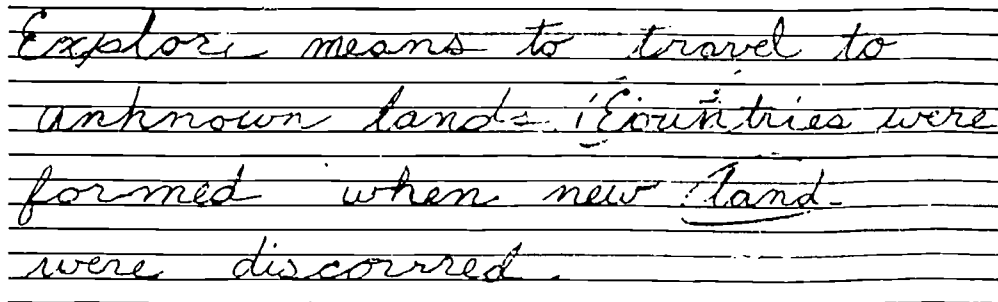 Explore means to travel to
unknown lands. Countries were
formed when new land
were discorred.